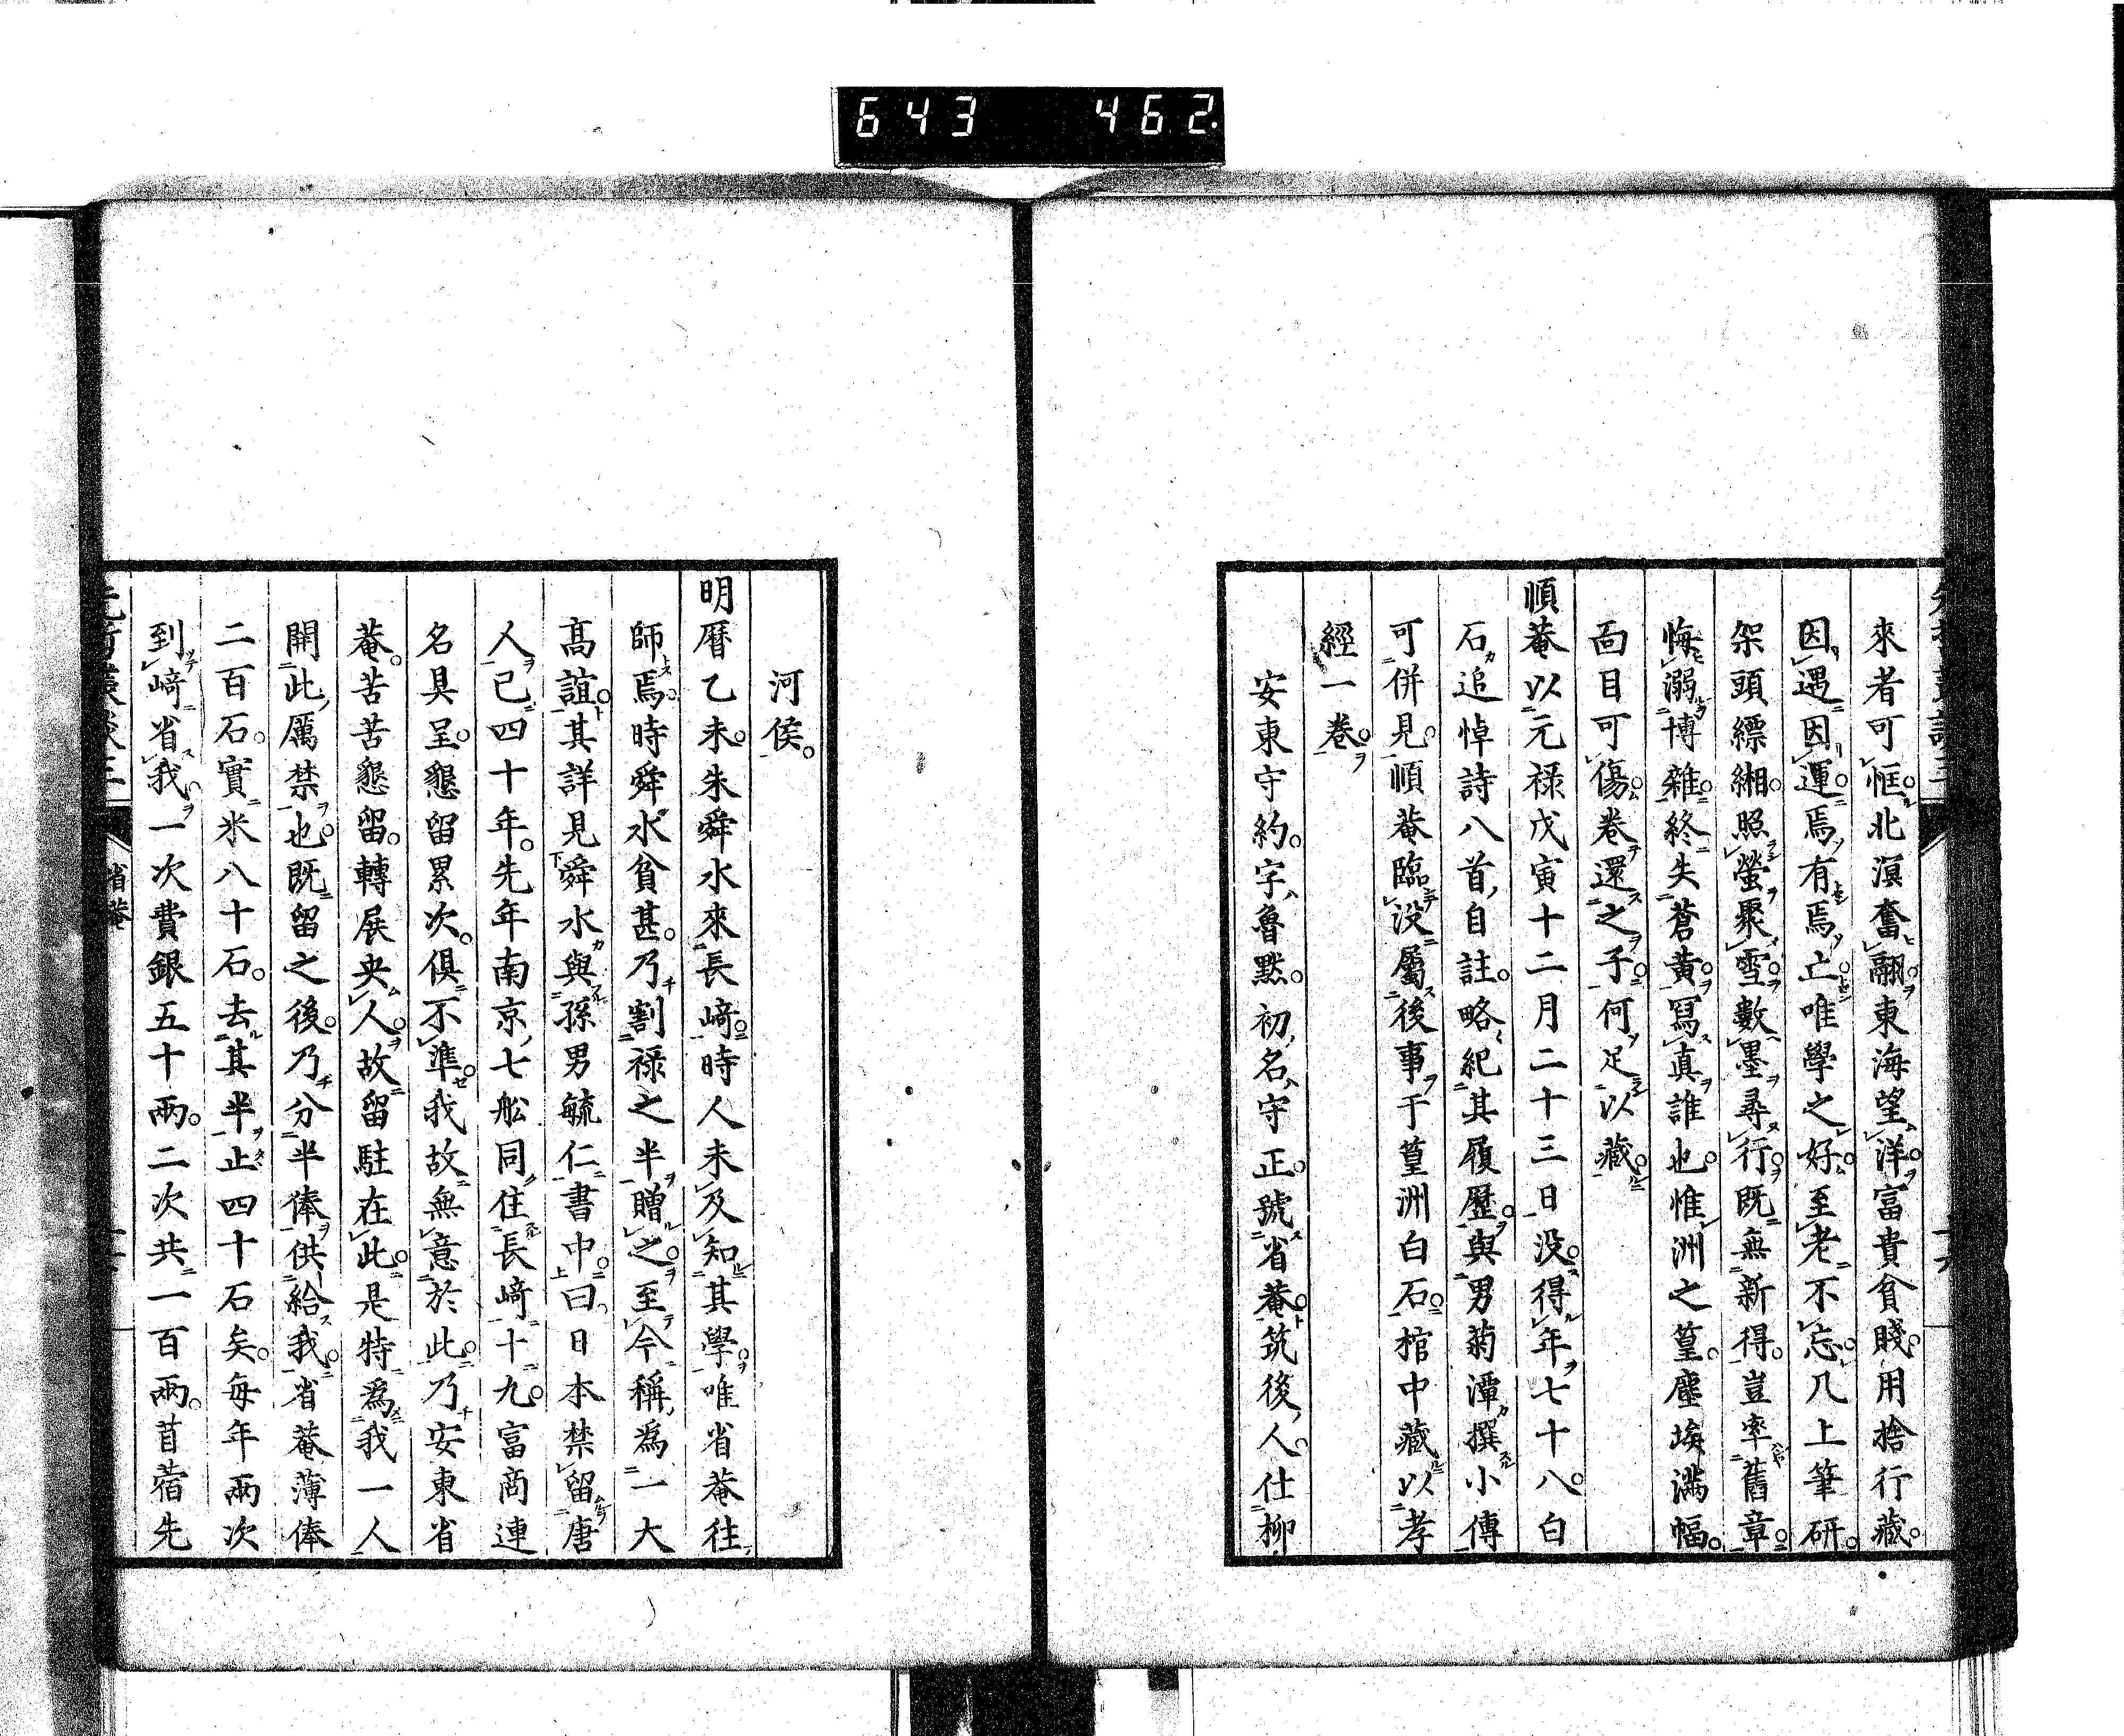 643 462
來者可恇北溟奮翮東海望洋富貴貧賤用捨行藏
因遇因運焉有焉亡唯學之好至老不忘几上筆研
架頭縹緗照螢聚雪數墨尋行既無新得豈率舊章
悔溺博雜終失蒼黃寫真誰也惟洲之篁塵埃滿幅
面目可傷卷還之子何足以藏
順菴以元祿戊寅十二月二十三日没得年七十八白
石追悼詩八首自註略紀其履歷與男菊潭撰小傳
可併見順菴臨没屬後事于篁洲白石棺中藏以孝
經一卷
安東守約字魯默初名守正號省菴筑後人仕柳
河侯
明曆乙未朱舜水來長﨑時人未及知其學唯省菴往
師焉時舜水貧甚乃割祿之半贈之至今稱為一大
高誼其詳見舜水與孫男毓仁書中曰日本禁留唐
人已四十年先年南京七船同住長﨑十九富商連
名具呈懇留累次俱不準我故無意於此乃安東省
菴苦苦懇留轉展央人故留駐在此是特為我一人
開此厲禁也既留之後乃分半俸供給我省菴薄俸
二百石實米八十石去其半止四十石矣每年兩次
到﨑省我一次費銀五十兩二次共一百兩苜蓿先
省菴